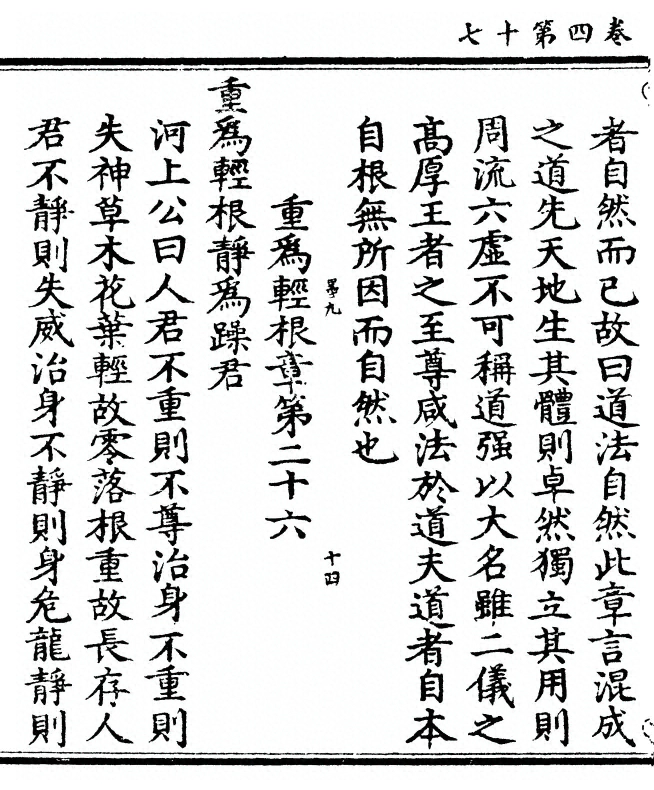 卷四第十七
者自然而已故曰道法自然此章言混成
之道先天地生其體則卓然獨立其用則
周流六虛不可稱道强以大名雖二儀之
高厚王者之至尊咸法於道夫道者自本
自根無所因而自然也
㝷九
十四
重爲輕根章第二十六
重爲輕根靜爲躁君
河上公曰人君不重則不尊治身不重則
失神草木花葉輕故零落根重故長存人
君不靜則失威治身不靜則身危龍靜則